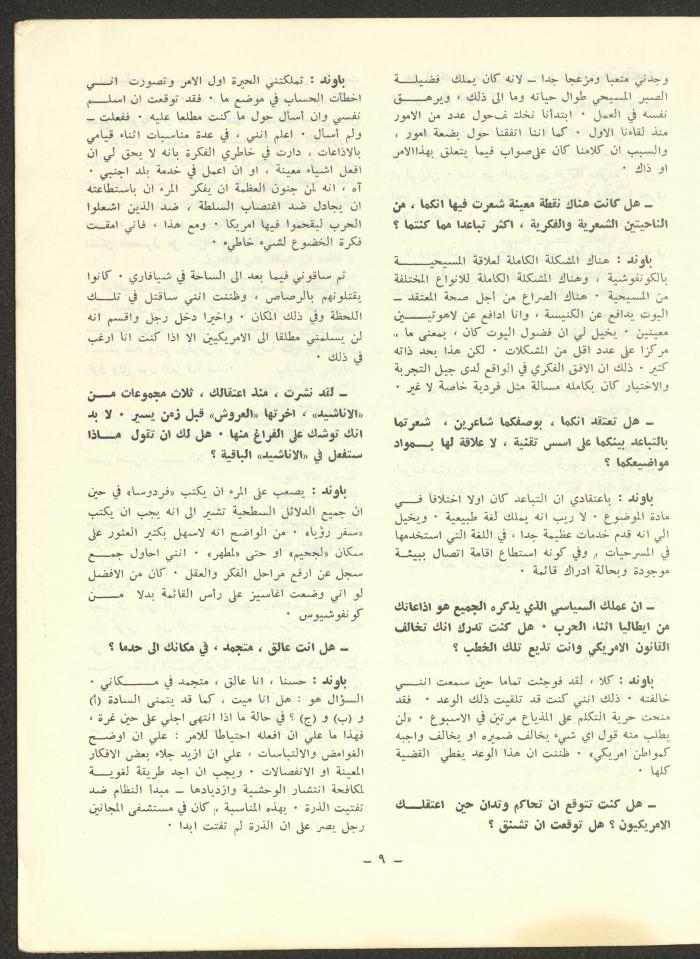 وجدني متعبا ومزعجا جدا ــ لانه كان يملك فضيلـــة
الصبر المسيحي طوال حياته وما الى ذلك ، ويرهـــق
نفسه في العمل ٠ ابتدأنا نختلف حول عدد من الامور
منذ لقاءنا الاول ٠ كما اننا اتفقنا حول بضعة امور ،
والسبب ان كلامنا كان على صواب فيما يتعلق بهذا الامر
او ذاك ٠
ــ هل كانت هناك نقطة معينة شعرت فيها انكما ، من
الناحيتين الشعرية والفكرية ، اكثر تباعدا مما كنتما ؟
باوند : هناك المشكلة الكاملة لعلاقة المسيحيـــة
بالكونفوشية ، وهناك المشكلة الكاملة للانواع المختلفة
من المسيحية ٠ هناك الصراع من أجل صحة المعتقد ــ
اليوت يدافع عن الكنيسة ، وانا ادافع عن لاهوتيـــين
معينين ٠ يخيل لي ان فضول اليوت كان ، بمعنى ما ،
مركزا على عدد اقل من المشكلات ٠ لكن هذا بحد ذاته
كثير ٠ ذلك ان الافق الفكري في الواقع لدى جيل التجربة
والاختبار كان بكامله مسألة مثل فردية خاصة لا غير ٠
ــ هل تعتقد انكما ، بوصفكما شاعرين ، شعرتما
بالتباعد بينكما على اسس تقنية ، لا علاقة لها بـــمواد
مواضيعكما ؟
باوند : باعتقادي ان التباعد كان اولا اختلافا فـــي
مادة الموضوع ٠ لا ريب انه يملك لغة طبيعية ٠ ويخيل
الي انه قدم خدمات عظيمة جدا ، في اللغة التي استخدمها
في المسرحيات ، وفي كونه استطاع اقامة اتصال ببيئـــة
موجودة وبحالة ادراك قائمة ٠
ــ ان عملك السياسي الذي يذكره الجميع هو اذاعاتك
من ايطاليا اثناء الحرب ٠ هل كنت تدرك انك تخالف
القانون الامريكي وانت تذيع تلك الخطب ؟
باوند : كلا ، لقد فوجئت تماما حين سمعت اننـــي
خالفته ٠ ذلك انني كنت قد تلقيت ذلك الوعد ٠ فقد
منحت حرية التكلم على المذياع مرتين في الاسبوع ٠ «لن
يطلب منه قول اي شيء يخالف ضميره او يخالف واجبه
كمواطن امريكي» ٠ ظننت ان هذا الوعد يغطي القضية
كلها ٠
ــ هل كنت تتوقع ان تحاكم وتدان حين اعتقلـــك
الامريكيون ؟ هل توقعت ان تشنق ؟
باوند : تملكتني الحيرة اول الامر وتصورت انـــي
اخطأت الحساب في موضع ما ٠ فقد توقعت ان اسلـــم
نفسي وان أسأل حول ما كنت مطلعا عليه ٠ ففعلت ــ
ولم أسأل ٠ اعلم انني ، في عدة مناسبات اثناء قيامي
بالاذاعات ، دارت في خاطري الفكرة بانه لا يحق لي ان
افعل اشياء معينة ، او ان اعمل في خدمة بلد اجنبي ٠
آه ، انه لمن جنون العظمة ان يفكر المرء ان باستطاعته
ان يجادل ضد اغتصاب السلطة ، ضد الذين اشعلوا
الحرب ليقحموا فيها امريكا ٠ ومع هذا ، فاني امقـت
فكرة الخضوع لشيء خاطيء ٠
ثم ساقوني فيما بعد الى الساحة في شيافاري ٠ كانوا
يقتلونهم بالرصاص ، وظننت انني سأقتل في تلـــك
اللحظة وفي ذلك المكان ٠ واخيرا دخل رجل واقسم انه
لن يسلمني مطلقا الى الامريكيين الا اذا كنت انا ارغب
في ذلك ٠
ــ لقد نشرت ، منذ اعتقالك ، ثلاث مجموعات مـــن
«الاناشيد» ، آخرتها «العروش» قبل زمن يسير ٠ لا بد
انك توشك على الفراغ منها ٠ هل لك ان تقول مـــاذا
ستفعل في «الاناشيد» الباقية ؟
باوند : يصعب على المرء ان يكتب «فردوسا» في حين
ان جميع الدلائل السطحية تشير الى انه يجب ان يكتب
«سفر رؤيا» ٠ من الواضح انه لاسهل بكثير العثور على
سكان «لجحيم» او حتى «لمطهر» ٠ انني احاول جمـــع
سجل عن ارفع مراحل الفكر والعقل ٠ كان من الافضل
لو اني وضعت اغاسيز على رأس القائمة بدلا مـــن
كونفوشيوس ٠
ــ هل انت عالق ، متجمد ، في مكانك الى حدما ؟
باوند : حسنا ، انا عالق ، متجمد في مكـــاني ٠
السؤال هو : هل انا ميت ، كما قد يتمنى السادة (أ)
و (ب) و (ج) ؟ في حالة ما اذا انتهى اجلي على حين غرة ،
فهذا ما علي ان افعله احتياطا للامر : علي ان اوضـــح
الغوامض والالتباسات ، علي ان ازيد جلاء بعض الافكار
المعينة او الانفصالات ٠ ويجب ان اجد طريقة لغويـــة
لمكافحة انتشار الوحشية وازديادها ــ مبدأ النظام ضد
تفتيت الذرة ٠ بهذه المناسبة ، كان في مستشفى المجانين
رجل يصر على ان الذرة لم تفتت ابدا ٠
ــ ٩ ــ